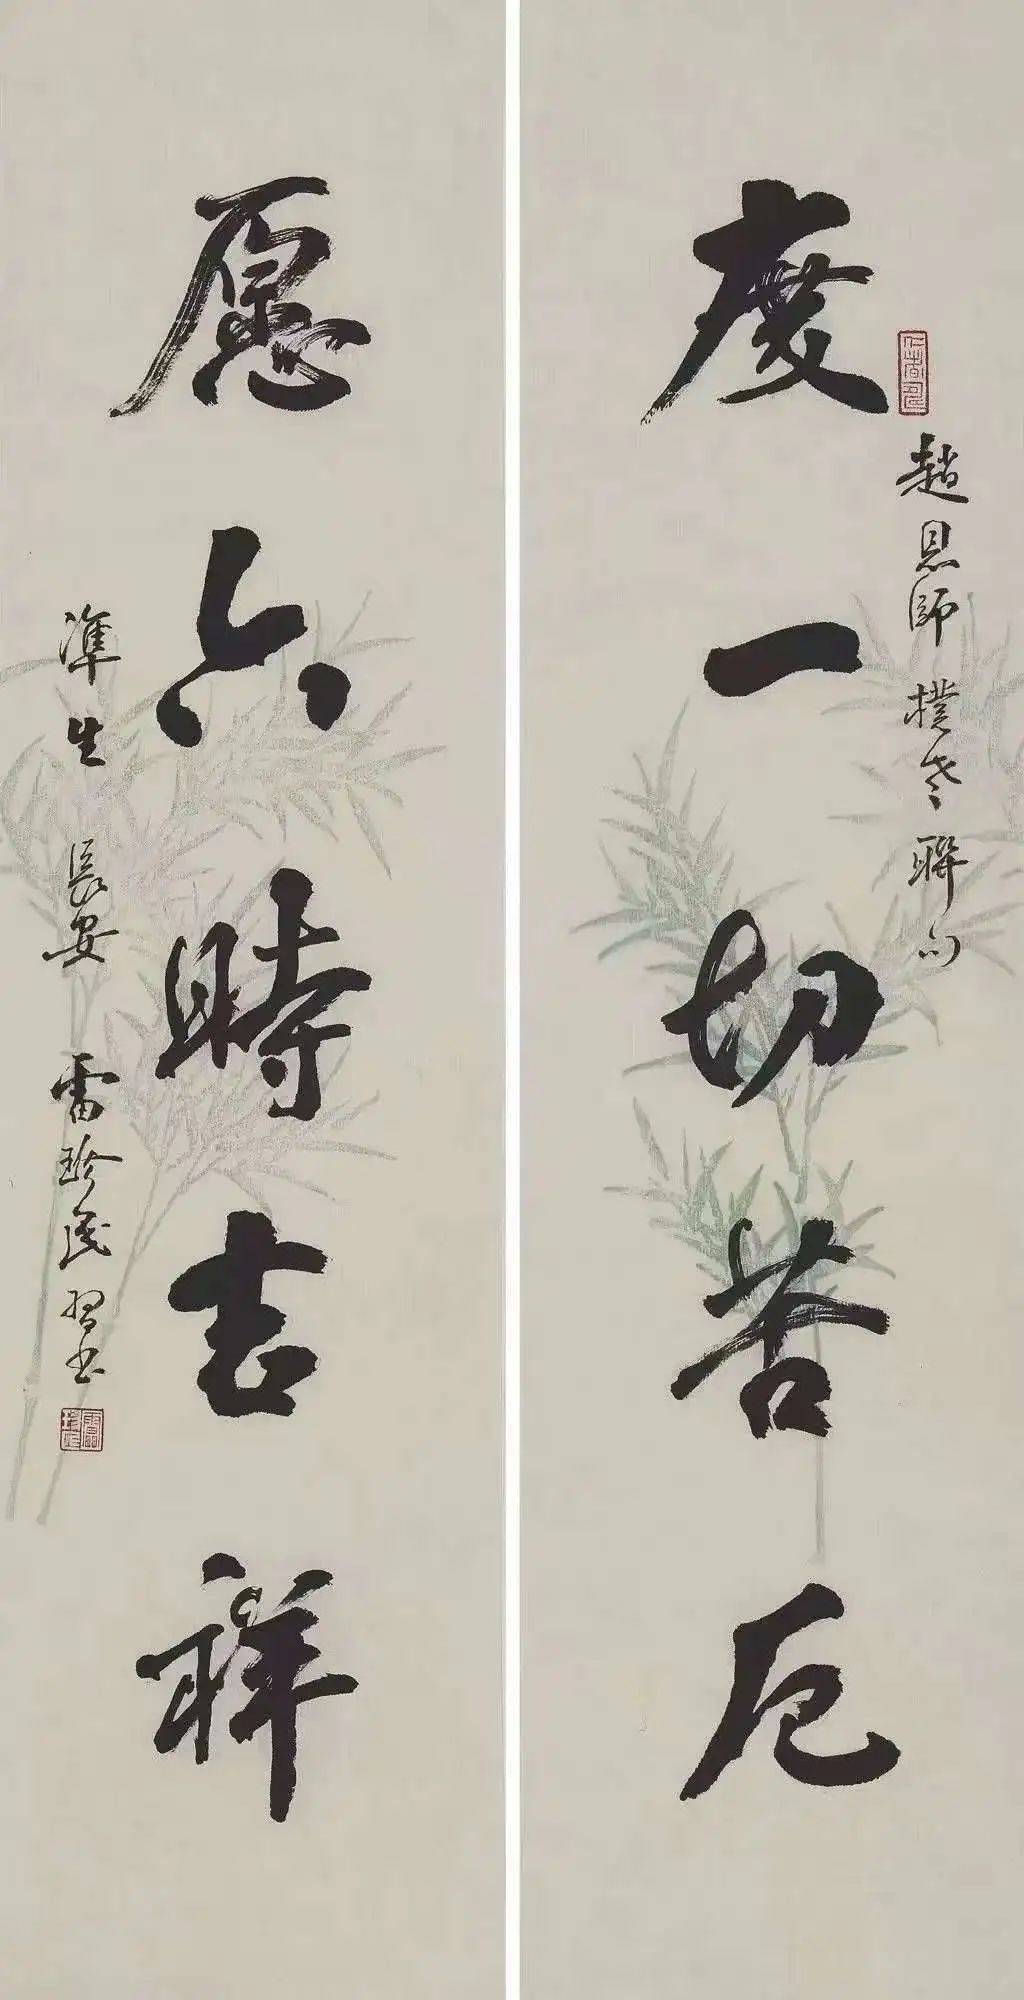 度一切苦厄
趙恩師樸老聯句
愿六時吉祥
準生 長安 雷珍民習书